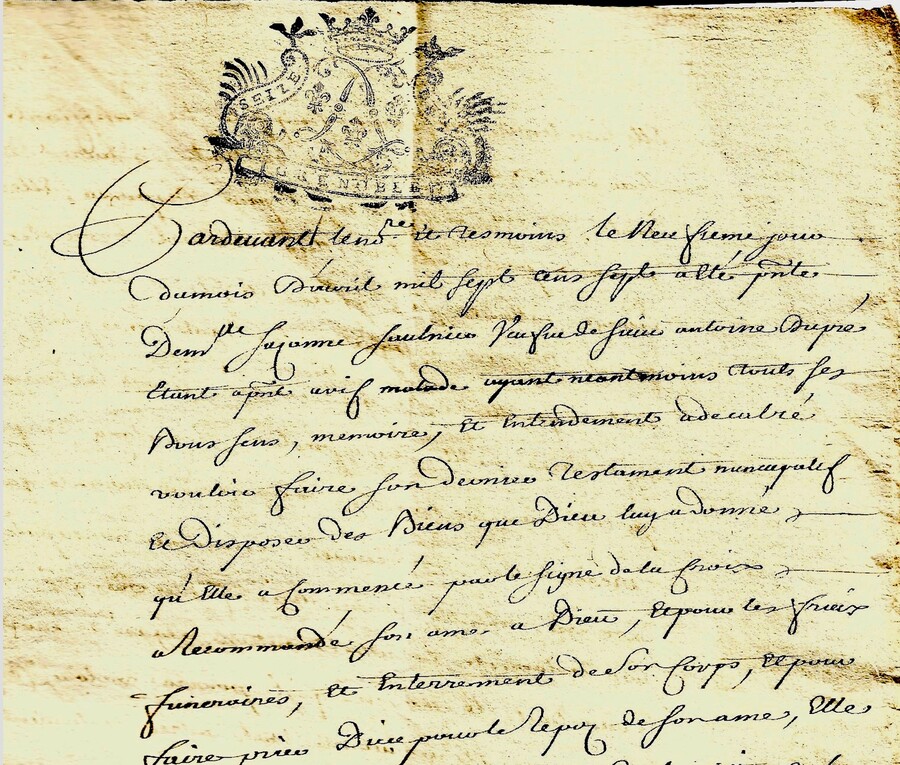 SEIZE
GRENOBLE
Pardevant le no.re et tesmoins le Neufiemé jour
dumois D'avril mil sept cens sept a été p̃nte
Dem.lle Suzanne Saulnier Veufve de Sieur antoine Dupré
Etant malade ayant neantmoins touts ses
Bons sens, memoire, Et Entendement a declaré
vouloir faire son dernier Testament nuncupatif
Et Disposer des Biens que Dieu luy a donné,
qu'Elle a Commencé par le signe de la Croix
a Recommandé son ame a Dieu, Et pour les fraix
funeraires, Et Enterrement de Son Corps, Et pour
faire prier Dieu pour le Repoz de Son ame, Elle